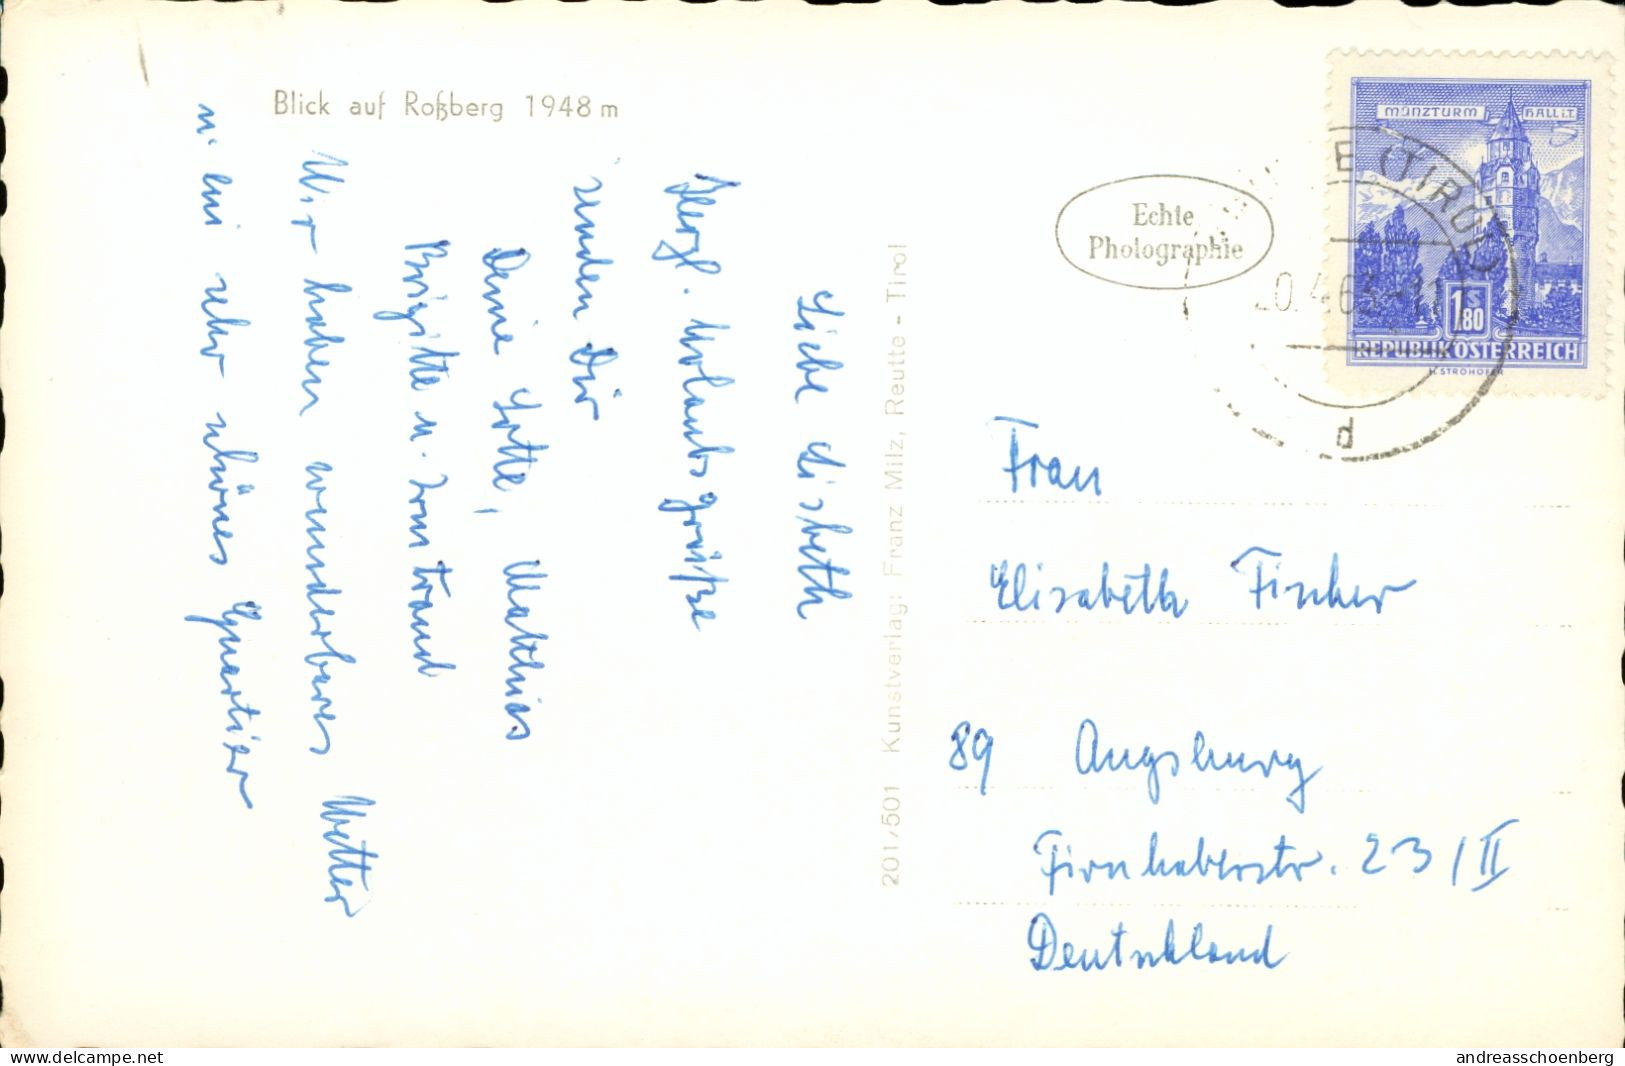 Blick auf Roßberg 1948 m
Liebe Lisbeth
Herzl. Urlaubsgrüße
senden Dir
Deine Lotte, Matthias
Brigitte u.
Wir haben wunderbares Wetter
u. ein sehr schönes Quartier
201/501 Kunstverlag: Franz Milz, Reutte - Tirol
Echte
Photographie
MÜNZTURM HALL i.T.
1.80 S
REPUBLIK ÖSTERREICH
H. STROHOFER
E (TIROL)
0.4.63-11
d
Frau
Elisabeth Fischer
89 Augsburg
Firnhaberstr. 23/II
Deutschland
www.delcampe.net
andreasschoenberg